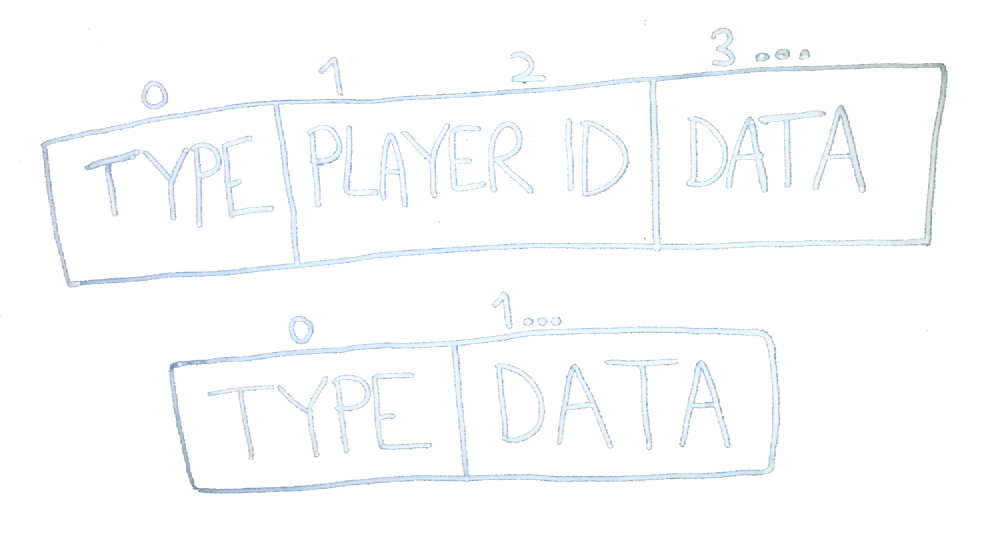 0 1 2 3 ...
TYPE PLAYER ID DATA
0 1...
TYPE DATA